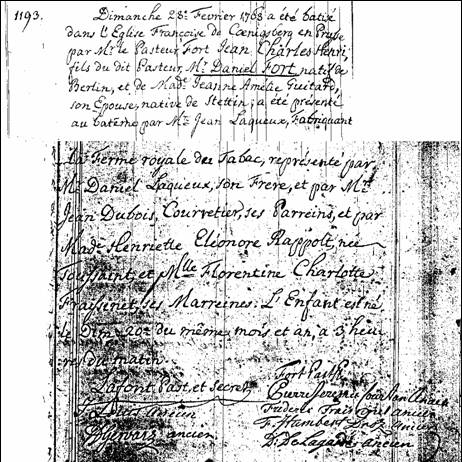 1193. Dimanche 28e Fevrier 1768 a été batisé
dans l'Eglise Françoise de Cœnigsberg en Prusse
par Mr le Pasteur Fort Jean Charles Henri,
fils du dit Pasteur, Mr Daniel FORT natif de
Berlin, et de Made Jeanne Amélie Guitard,
son Epouse, native de Stettin; a été presenté
au batême par Mr Jean Laqueux, Fabriquant
la Ferme royale du Tabac, représenté par
Mr Daniel Laqueux, son Frere, et par Mr
Jean Dubois, Courretier, ses Parreins, et par
Made Henriette Eléonore Rappolt, née
Toussaint, et Mlle Florentine Charlotte
Fraissinet, ses Marreines. L'Enfant est né
le Dim. 20e du même mois et an, à 3 heu-
res du matin.
Lafont Past. et secret.
Fort Past.
Pierre Jeremie ancien
ancien
Frideric ancien
Gervais ancien
F. Humbert Droz ancien
D. DeLagarde ancien